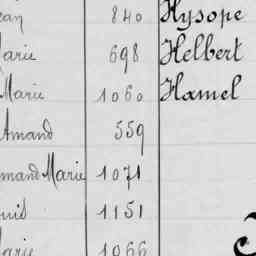 ean 840 Hysope
Marie 698 Helbert
Marie 1060 Hamel
Amand 559
mand Marie 1071
uis 1151
Marie 1066